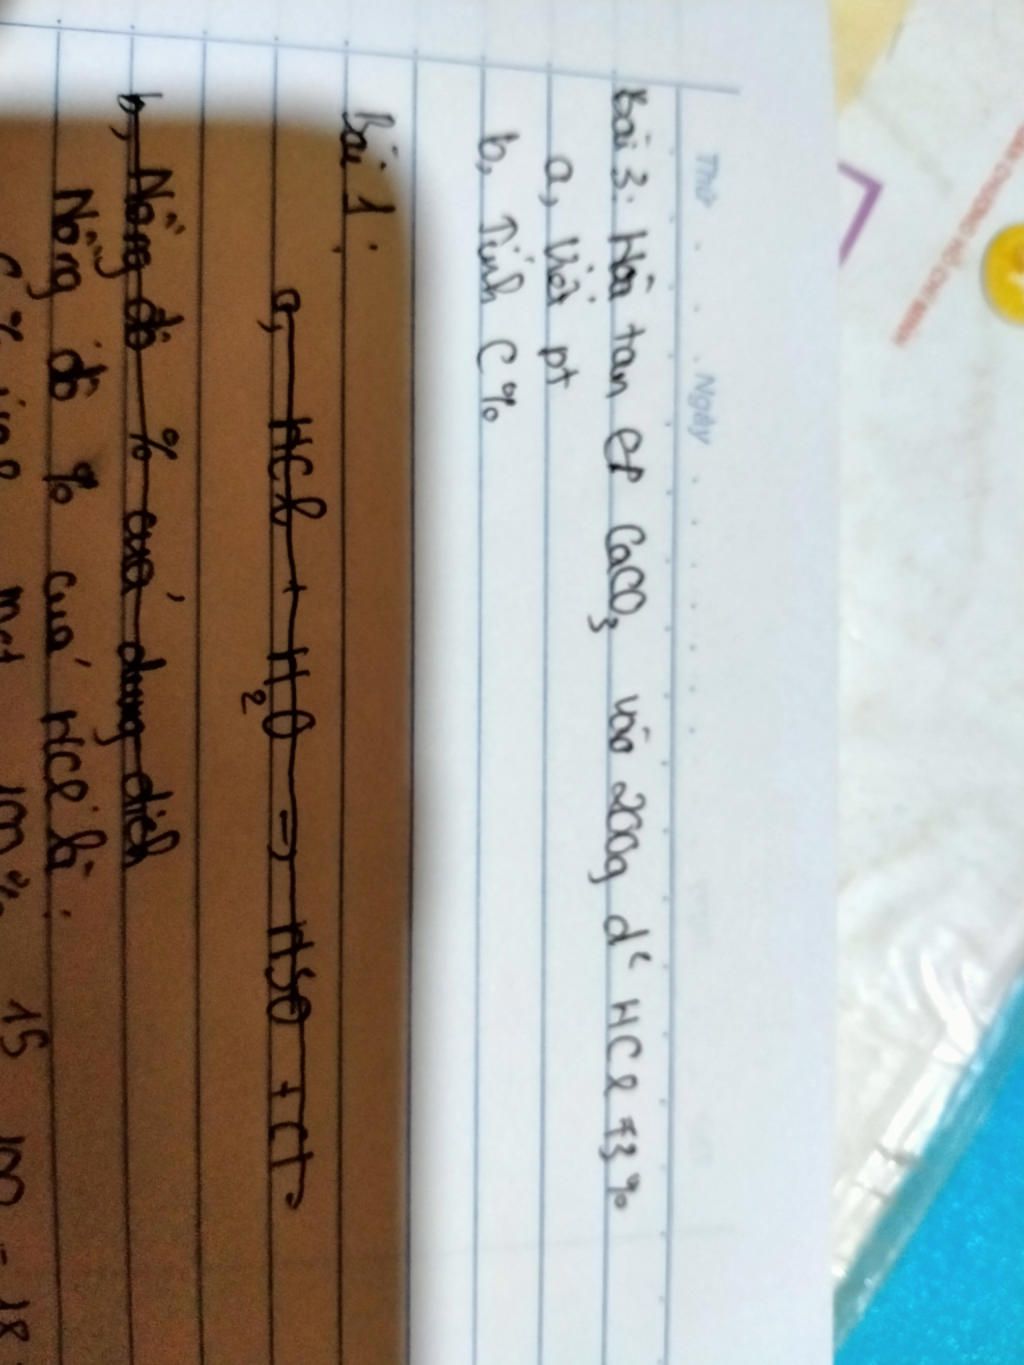 Thứ Ngày
Bài 3: Hòa tan CaCO3 vào 200g d² HCl 7,3%
a, Viết pt
b, Tính C%
Bài 1:
a, HCl + H2O => HSO + Cl
b, Nồng độ % của dung dịch
Nồng độ % của HCl là:
100% 15 100